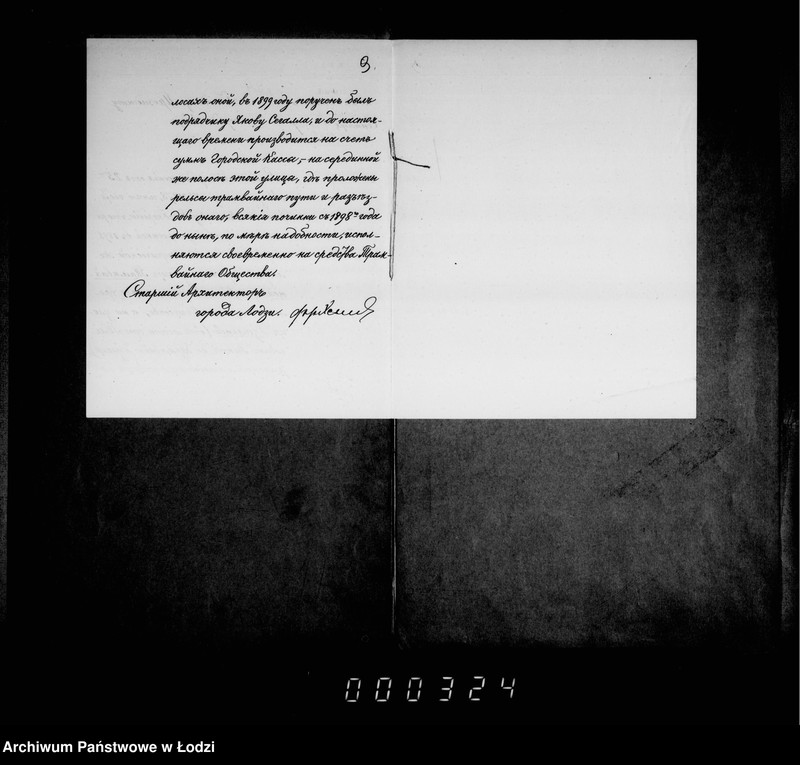 3.
лосахъ оной, въ 1899 году порученъ былъ
подрядчику Якову Сегалла, и до настоя-
щаго времени производится на счетъ
суммъ Городской Кассы; – на серединной
же полосѣ этой улицы, гдѣ проложены
рельсы трамвайнаго пути и разъѣз-
довъ онаго, всякія починки съ 1898 года
до нынѣ, по мѣрѣ надобности, испол-
няются своевременно на средства Трам-
вайнаго Общества.
Старшій Архитекторъ
города Лодзи.
000324
Archiwum Państwowe w Łodzi